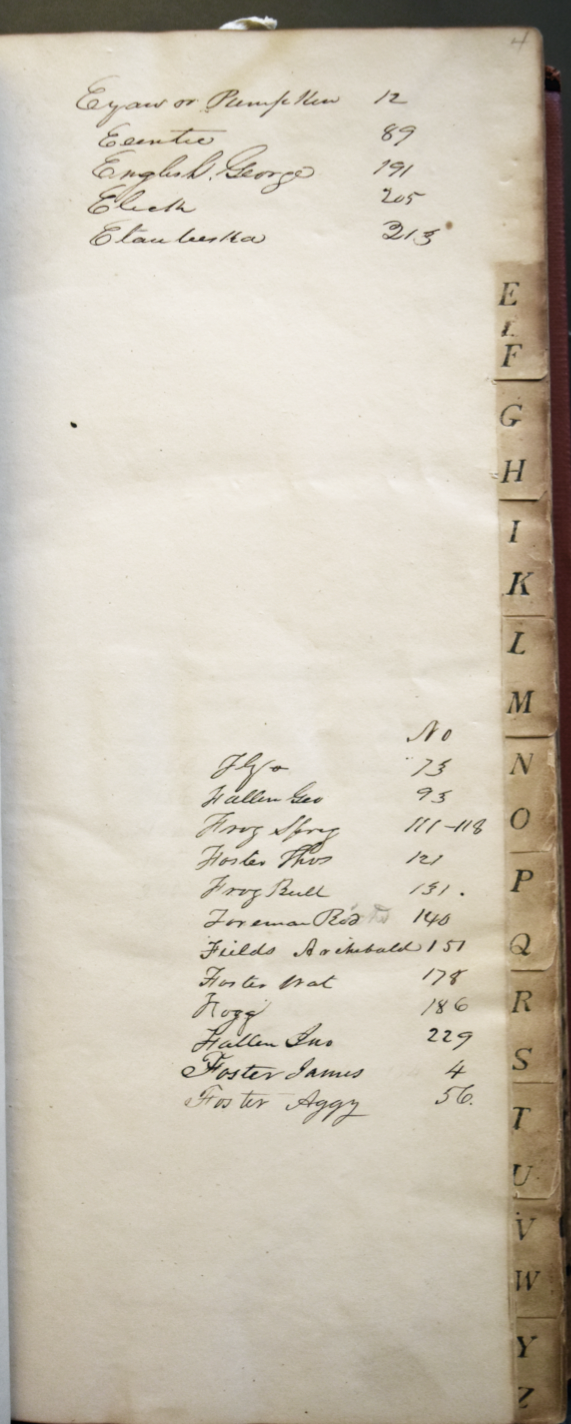 4
Eyaw or Pumpkin 12
Eeentie 89
English George 191
Elick 205
Etauleeska 213
E
F
G
H
I
K
L
M
N
O
P
Q
R
S
T
U
V
W
Y
Z
No
73
Fallen Geo 93
Frog Spring 111-118
Foster Thos 121
Frog Bull 131.
Foreman Rob 140
Fields Archibald 151
Foster Wat 178
Fogg 186
Fallen Jno 229
Foster James 4
Foster Aggy 56.